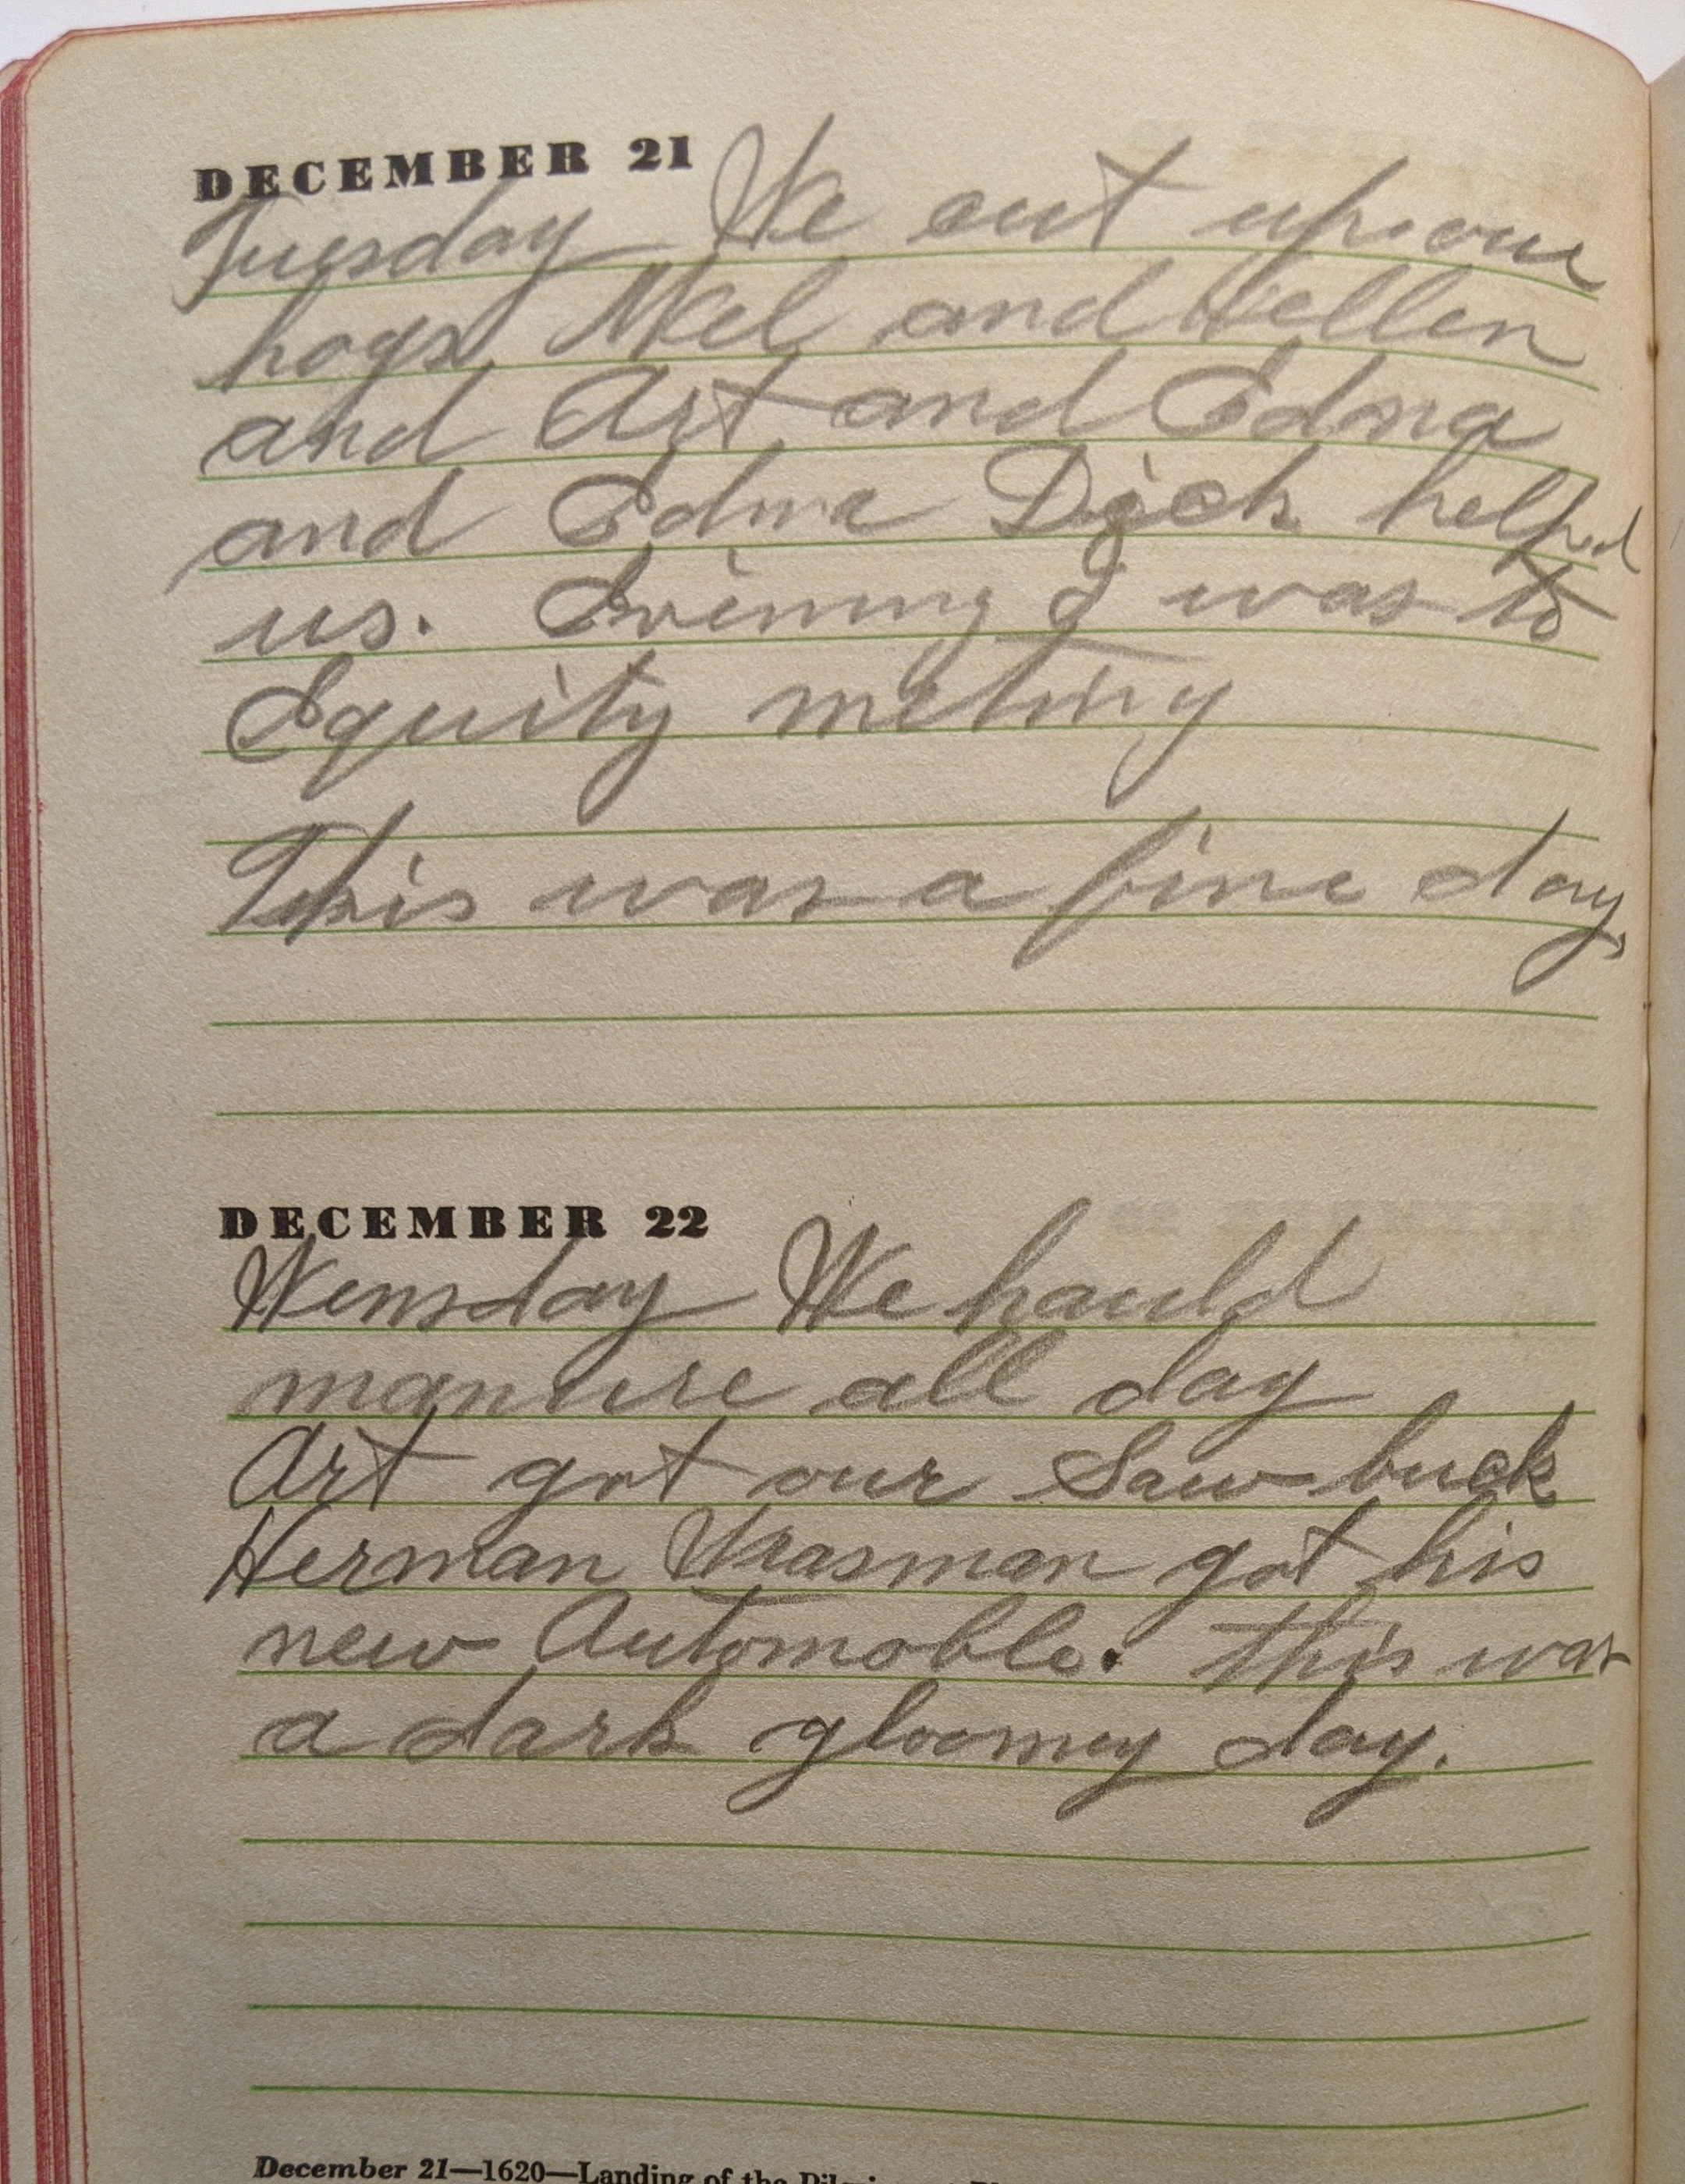 DECEMBER 21
Tuesday We cut up our
hogs Mel and Hellen
and Art and Edna
and Edna Dick helped
us. Evening I was to
Equity meting
This was a fine day,
DECEMBER 22
Wensday We hauld
manure all day
Art got our Saw buck
Herman got his
new Automoble. this was
a dark gloomey day.
December 21—1620—Landing of the